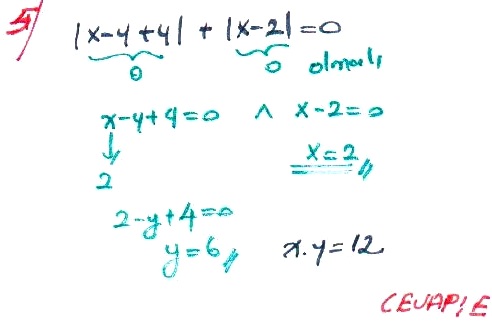 5) |x-y+4| + |x-2| = 0
0 0 olmalı
x-y+4=0 ∧ x-2=0
↓ x=2 //
2
2-y+4=0
y=6 // x.y=12
CEVAP: E